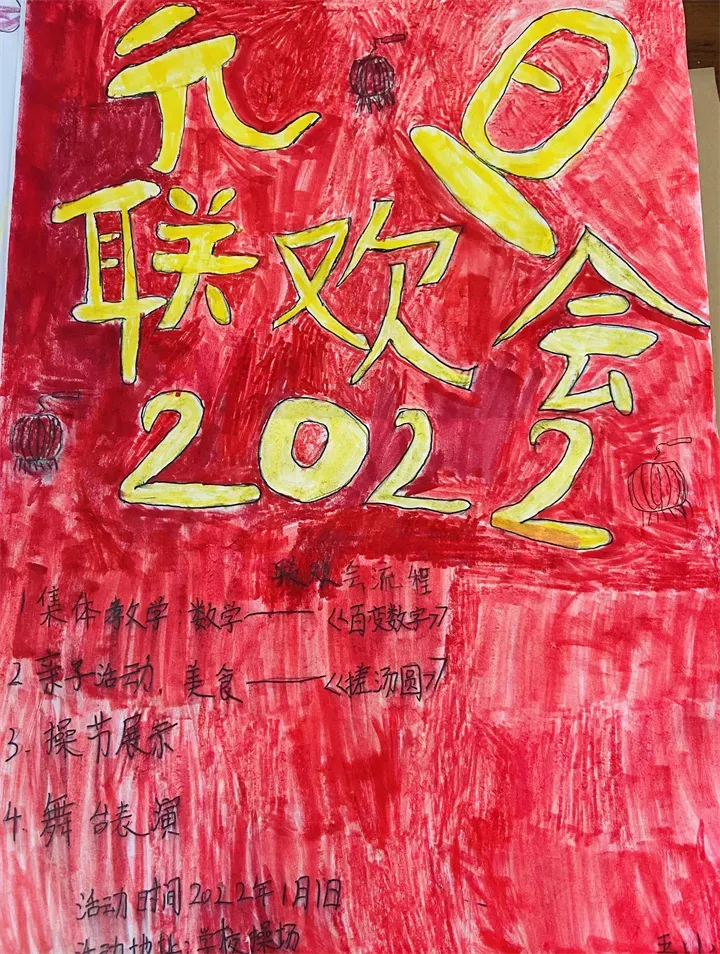 元旦
联欢会
2022
联欢会流程
1 集体教学:数学——《百变数字》
2 亲子活动,美食——《搓汤圆》
3. 操节展示
4. 舞台表演
活动时间2022年1月1日
活动地址:学校操场